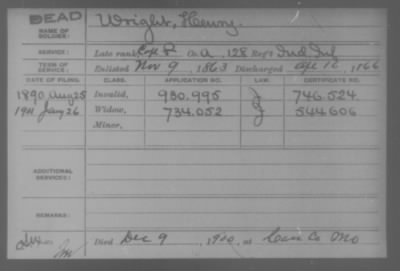 DEAD
NAME OF SOLDIER: Wright, Henry.
SERVICE: Late rank, Co. A, 128 Reg't Ind Inf
TERM OF SERVICE: Enlisted Nov 9, 1863 Discharged Apl 12, 1866
DATE OF FILING. CLASS. APPLICATION NO. CERTIFICATE NO.
1890 Aug 25 Invalid, 930.995 746.524
1911 Jany 26 Widow, 734.052 544606
Minor,
ADDITIONAL SERVICES:
REMARKS:
Died Dec 9, 1910, at Cass Co Mo